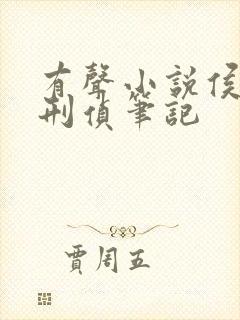 有聲小說侯
刑偵筆記
賈周五